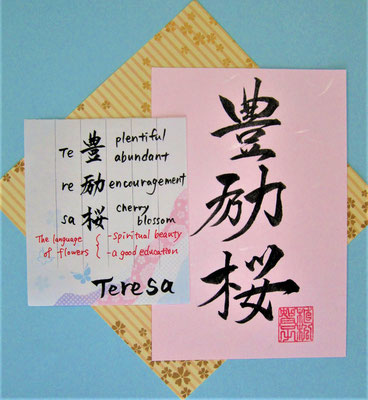 Te 豊 plentiful
abundant
re 励 encouragement
sa 桜 cherry
blossom
The language
of flowers { -spiritual beauty
-a good education
Teresa
豊
励
桜